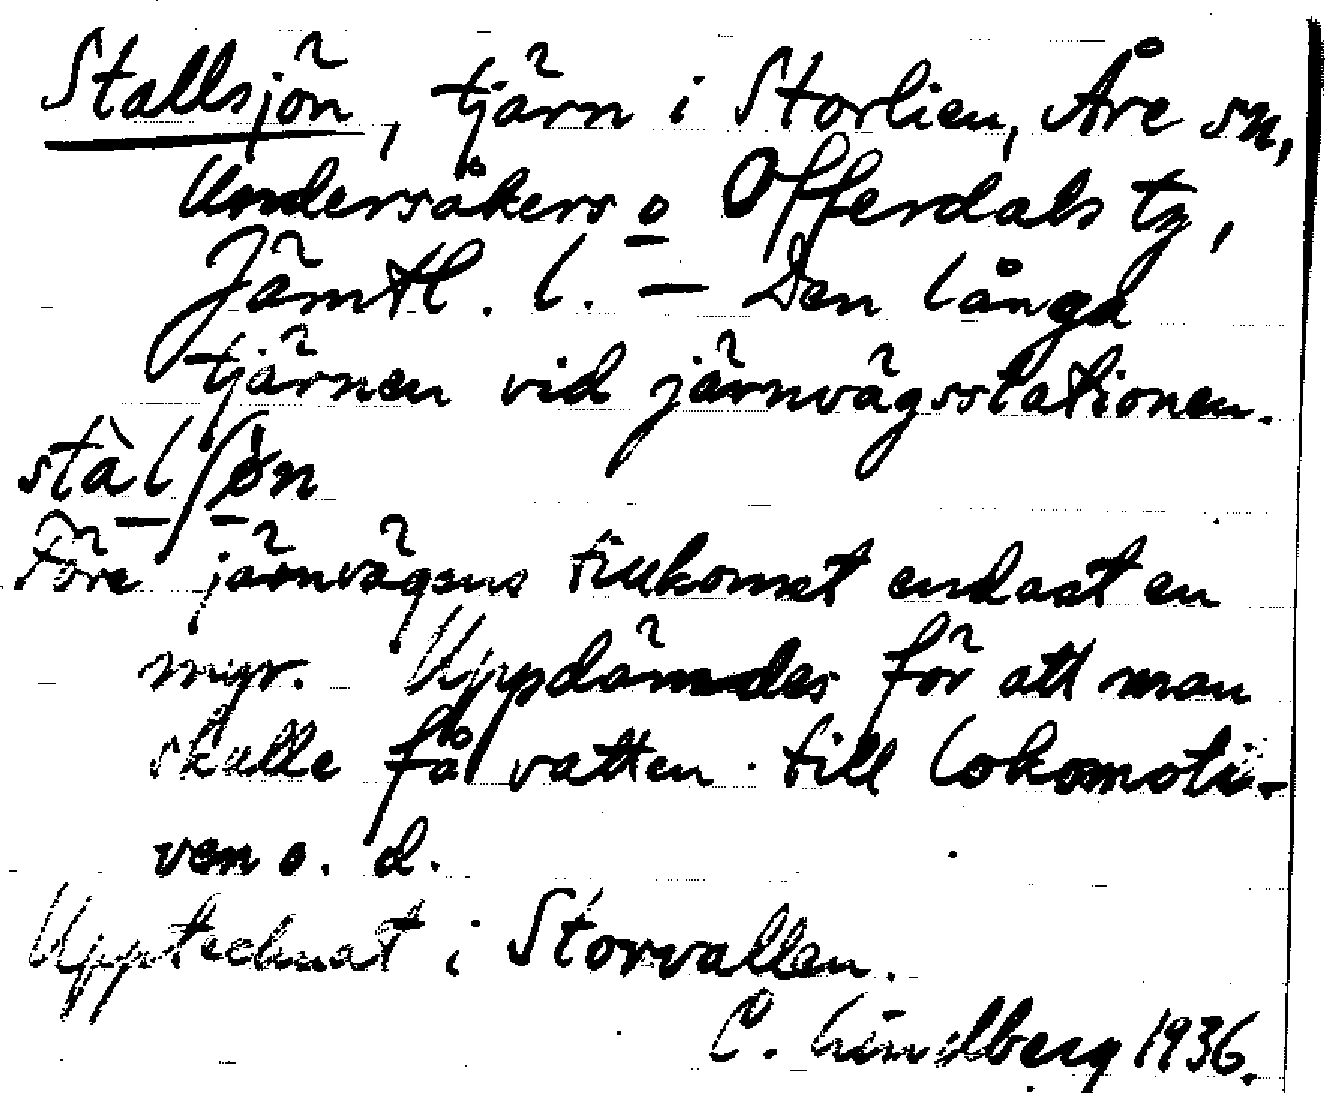 Stallsjön, tjärn i Storlien, Åre sn,
Undersåkers o Offerdals tg,
Jämtl. l. — Den långa
tjärnen vid järnvägsstationen.
stàlʃön
Före järnvägens tillkomst endast en
myr. Uppdämdes för att man
skulle få vatten till lokomoti-
ven o. d.
Upptecknat i Storvallen.
C. Lindberg 1936.